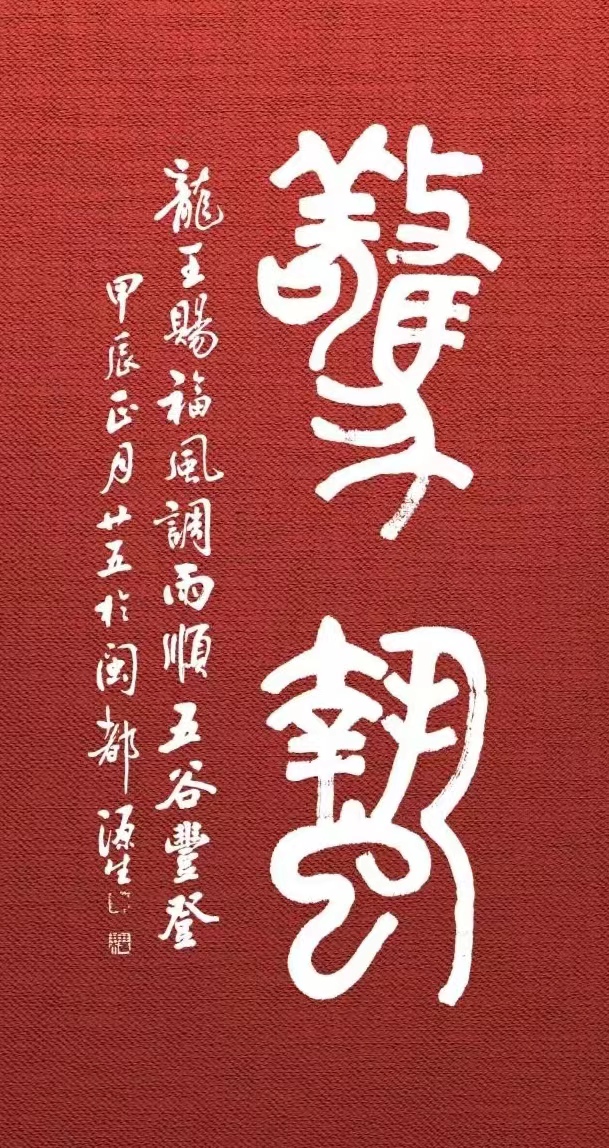 驚蟄
龍王賜福風調雨順五谷豐登
甲辰正月廿五於閩都源生